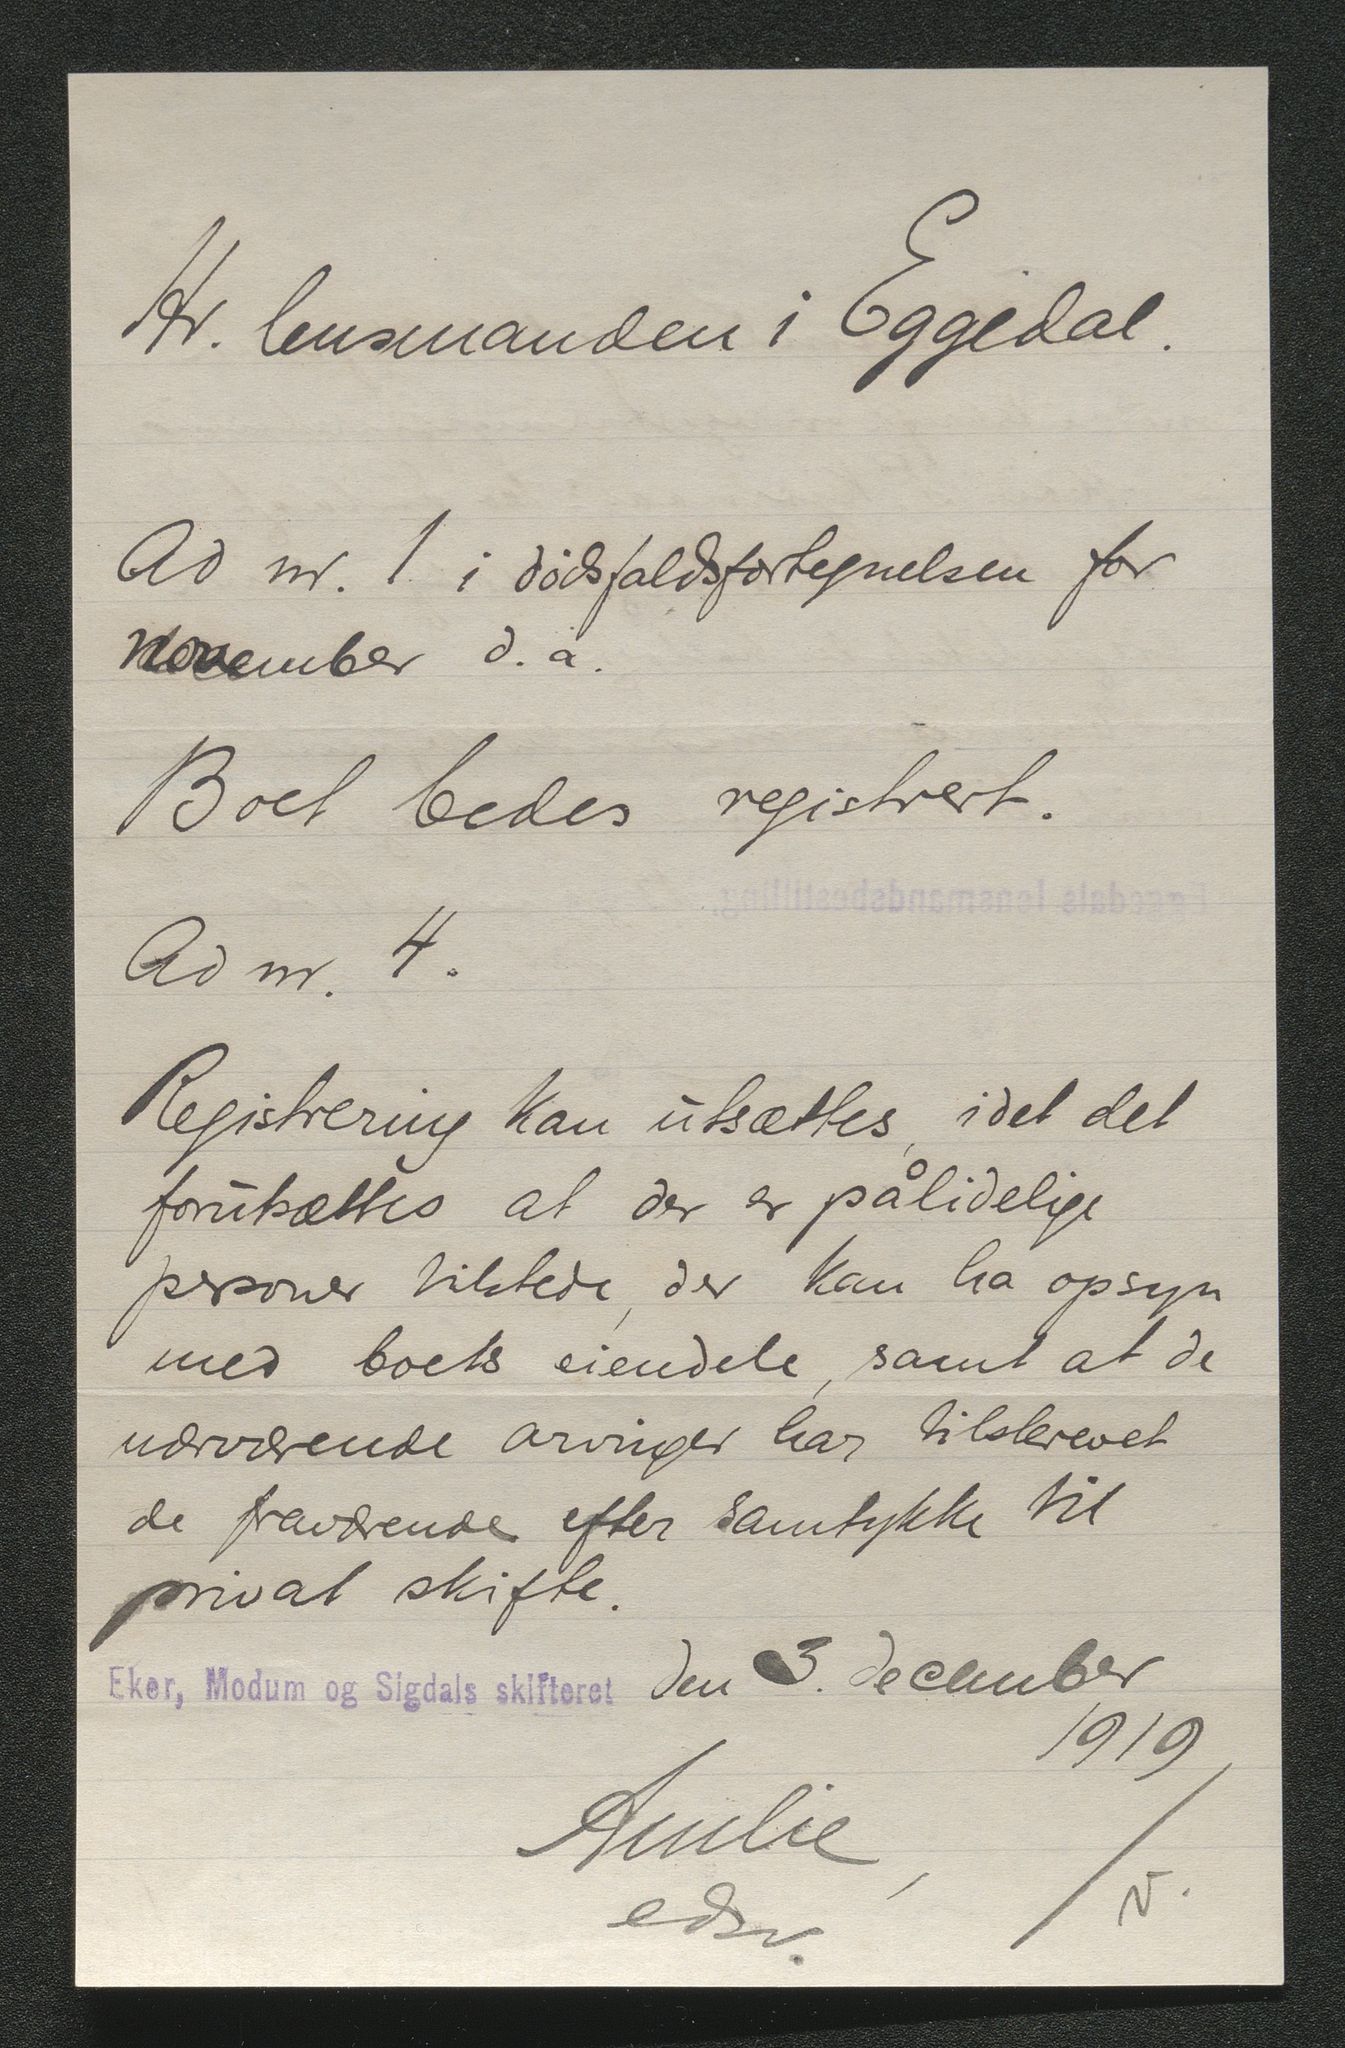 Hr. lensmanden i Eggedal.
Ad nr. 1 i dødsfaldsfortegnelsen for
november d. a.
Boet bedes registrert.
Eggedals lensmandsbestilling,
Ad nr. 4.
Registrering kan utsættes, idet det
forutsættes at der er pålidelige
personer tilstede, der kan ha opsyn
med boets eiendele, samt at de
nærværende arvinger har tilskrevet
de fraværende efter samtykke til
privat skifte.
Eker, Modum og Sigdals skifteret den 3. december
1919,
Amlie,
edsv. / N.